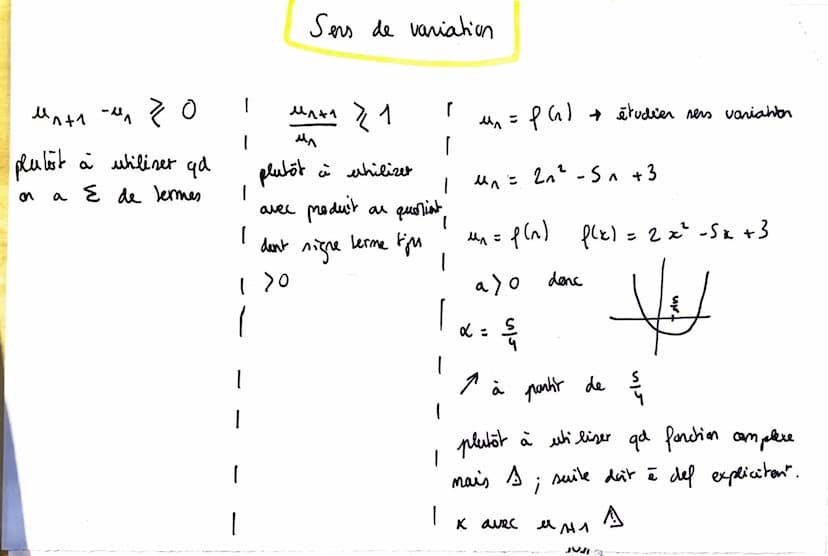 Sens de variation
u_{n+1} - u_n ⩾ 0
plutôt à utiliser qd
on a Σ de termes
u_{n+1}/u_n ⩾ 1
plutôt à utiliser
avec produit ou quotient
dont signe terme tjrs
>0
u_n = f(n) → étudier sens variation
u_n = 2n² - 5n + 3
u_n = f(n) f(x) = 2x² - 5x + 3
a > 0 donc
5/4
α = 5/4
↗ à partir de 5/4
plutôt à utiliser qd fonction complexe
mais ⚠ ; suite doit ê def explicitemt.
x avec u_{n+1} ⚠